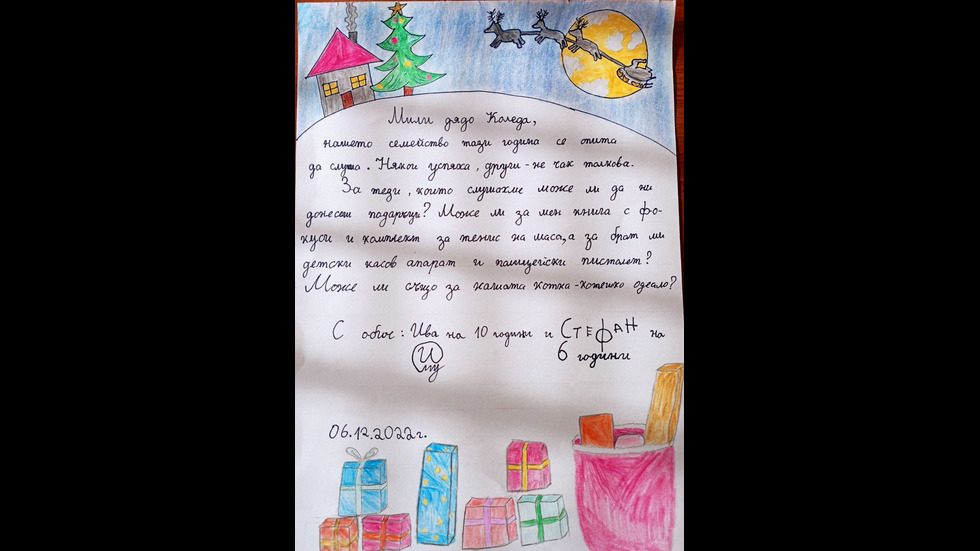 Мили дядо Коледа,
нашето семейство тази година се опита
да слуша. Някои успяха, други - не чак толкова.
За тези, които слушахме може ли да ни
донесеш подаръци? Може ли за мен книга с фо-
куси и комплект за тенис на маса, а за брат ми
детски касов апарат и полицейски пистолет?
Може ли също за нашата котка - котешко одеало?
С обич: Ива на 10 години и СТЕФАН на
6 години
06.12.2022г.